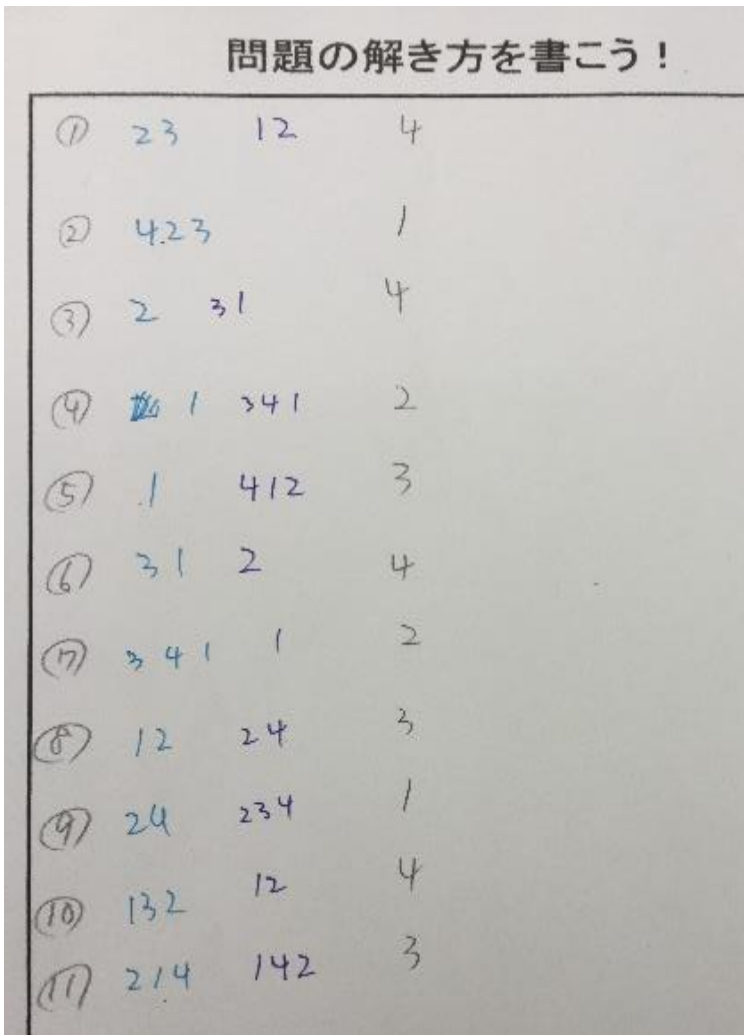 問題の解き方を書こう！
① 23 12 4
② 4.23 1
③ 2 31 4
④ 1 341 2
⑤ .1 412 3
⑥ 31 2 4
⑦ 341 1 2
⑧ 12 24 3
⑨ 24 234 1
⑩ 132 12 4
⑪ 214 142 3